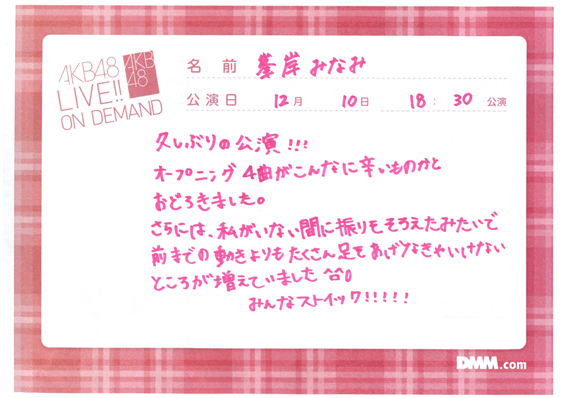 AKB48
LIVE!!
ON DEMAND
AKB
48
名 前 峯岸みなみ
公演日 12月 10日 18:30 公演
久しぶりの公演!!!
オープニング4曲がこんなに辛いものかと
おどろきました。
さらには、私がいない間に振りもそろえたみたいで
前までの動きよりもたくさん足をあげなきゃいけない
ところが増えていました^^;
みんなストイック!!!!!
DMM.com